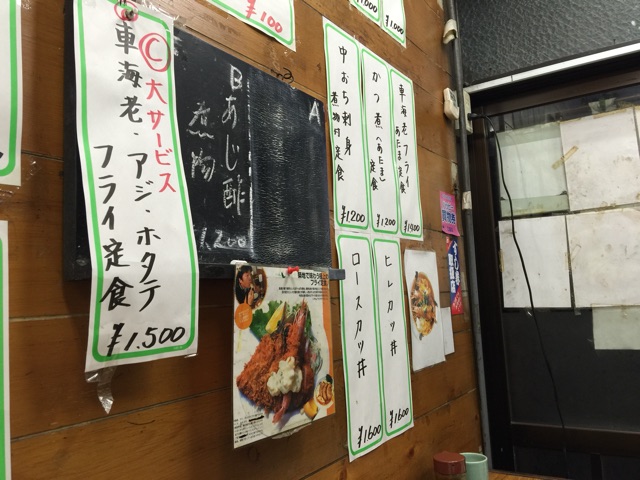 ¥100
¥1,000
Ⓒ大サービス
車海老・アジ・ホタテ
フライ定食
¥1.500
A
B
あじ酢
煮物
1,200
中おち刺身
煮物付定食
¥1200
かつ煮(あたま)
定食
¥1200
車海老フライ
あたま定食
ロースカツ丼
¥1600
ヒレカツ丼
¥1600
築地で味わう
フライ定食